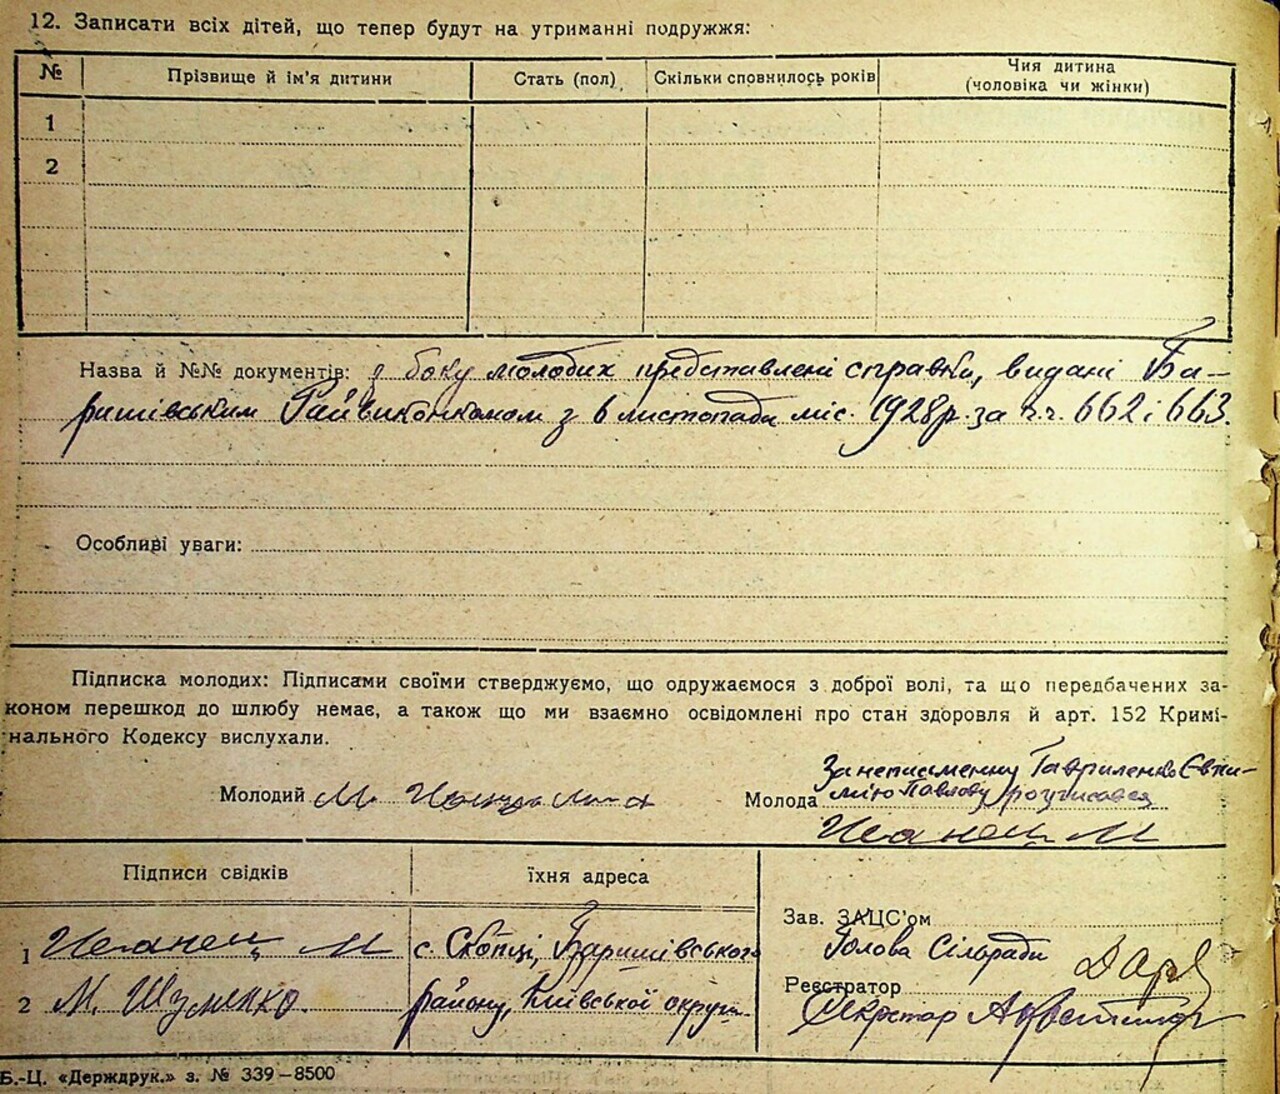 12. Записати всіх дітей, що тепер будут на утриманні подружжя:
№ Прізвище й ім'я дитини Стать (пол) Скільки сповнилось років Чия дитина (чоловіка чи жінки)
1
2
Назва й №№ документів: з боку молодих представлені справки, видані Ба-
ришівським Райвиконкомом з 6 листопада міс. 1928р. за ч.ч. 662 і 663.
Особливі уваги:
Підписка молодих: Підписами своїми стверджуємо, що одружаємося з доброї волі, та що передбачених за-
коном перешкод до шлюбу немає, а також що ми взаємно освідомлені про стан здоровля й арт. 152 Кримі-
нального Кодексу вислухали.
За неписьменну Гавриленко Євпи-
Молодий М. Молода мію Павлову розписався
М
Підписи свідків їхня адреса
Зав. ЗАЦС'ом
1 М с. Скопці, Баришівського Голова Сільради
Реєстратор
2 М. Шуменко. району, Київської округи Секретар
Б.-Ц. «Держдрук.» з. № 339—8500